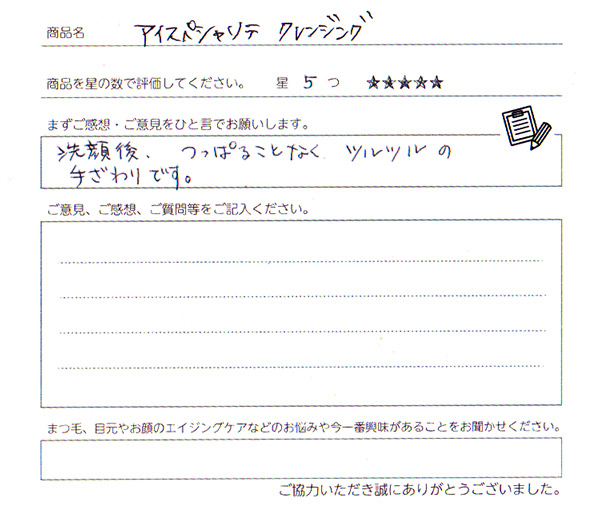 商品名 アイスペシャリテ クレンジング
商品を星の数で評価してください。 星 5 つ ★★★★★
まずご感想・ご意見をひと言でお願いします。
洗顔後、つっぱることなく ツルツルの
手ざわりです。
ご意見、ご感想、ご質問等をご記入ください。
まつ毛、目元やお顔のエイジングケアなどのお悩みや今一番興味があることをお聞かせください。
ご協力いただき誠にありがとうございました。